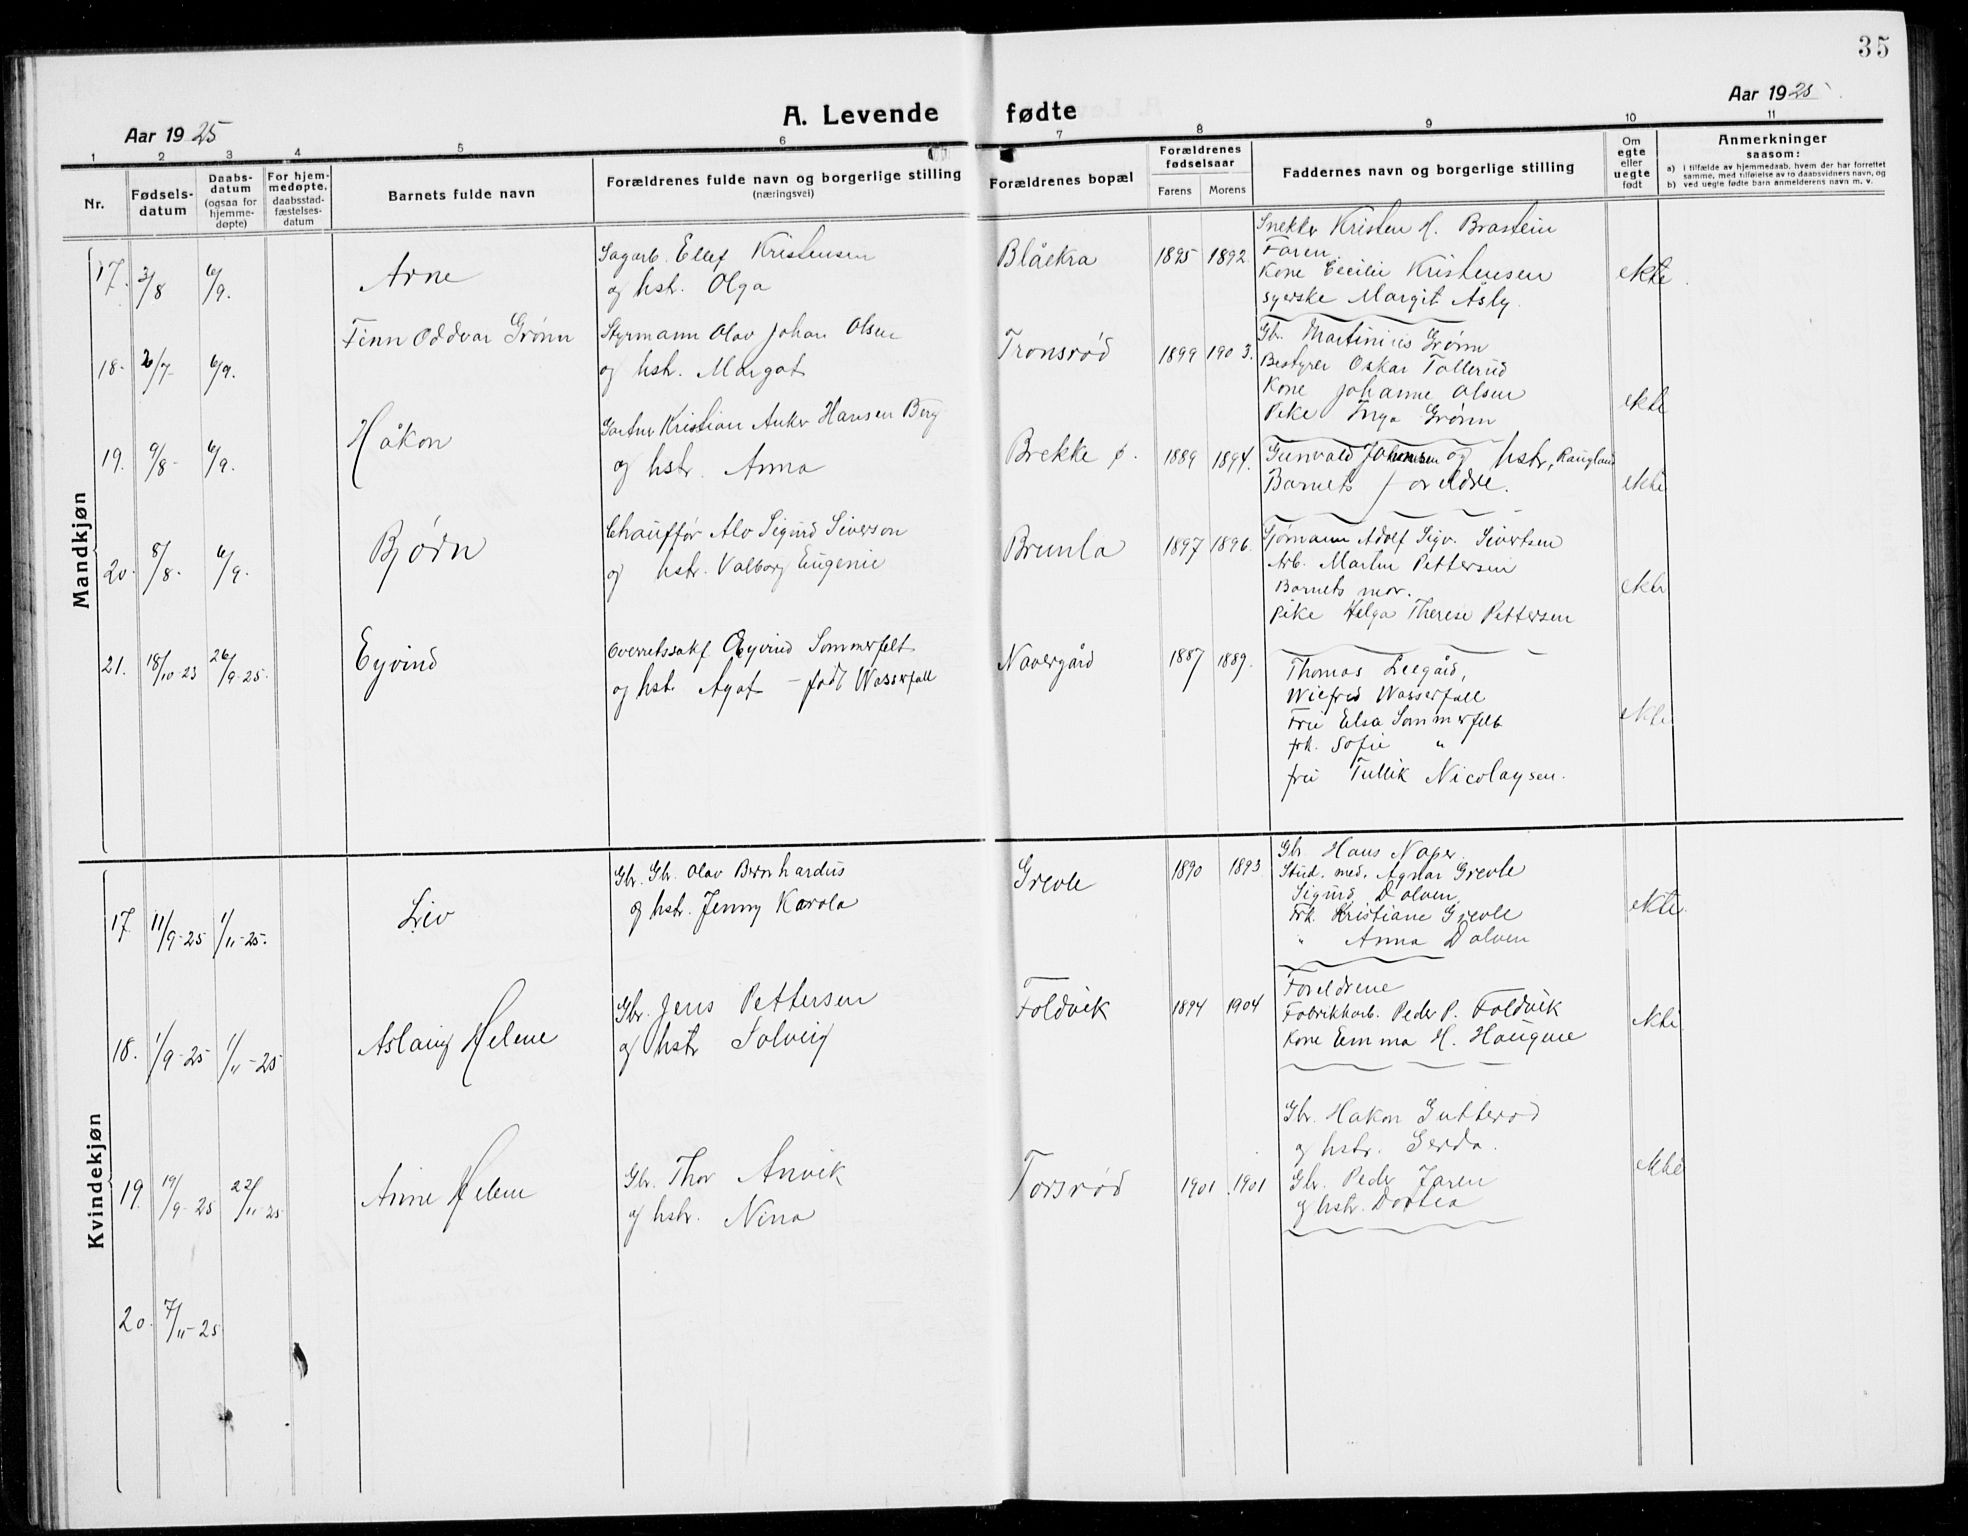 35
A. Levende fødte
Aar 1925
Aar 1925
1 2 3 4 5 6 7 8 9 10 11
Nr.
Fødsels-
datum
Daabs-
datum
(ogsaa for
hjemme-
døpte)
For hjem-
medøpte,
daabsstad-
fæstelses-
datum
Barnets fulde navn
Forældrenes fulde navn og borgerlige stilling
(næringsvei)
Forældrenes bopæl
Forældrenes
fødselsaar
Farens Morens
Faddernes navn og borgerlige stilling
Om
egte
eller
uegte
født
Anmerkninger
saasom:
a) i tilfælde av hjemmedaab, hvem der har forrettet
samme, med tilføielse av to daabsvidners navn, og
b) ved uegte fødte barn anmelderens navn m. v.
Mandkjøn
17. 3/8 6/9. Arne
Sagarb. Ellef Kristensen
og hstr. Olga
Blåekra 1895 1892.
Snekker Kristen H. Brastein
Faren.
Kone Cecilie Kristensen
syerske Margit Åsly.
ekte.
18. 26/7- 6/9. Finn Oddvar Grønn
Styrmann Olav Johan Olsen
og hstr. Margot
Tronsrød 1899 1903.
Gbr. Martinius Grønn
Bestyrer Oskar Tollerud
Kone Johanne Olsen
Pike Inga Grønn
ekte
19. 9/8- 6/9. Håkon
Gartner Kristian Anker Hansen Berg
og hstr. Anna
Brekke ø. 1889 1894.
Gunvald Johansen og hstr, Raugland
Barnets foreldre.
ekte
20. 8/8- 6/9. Bjørn
Chauffør Alv Sigurd Siverson
og hstr. Valborg Eugenie
Brunla 1897 1896.
Tjømann Adolf Sigv. Sivertsen
Arb. Martin Pettersen
Barnets mor.
pike Helga Therese Pettersen
ekte
21. 18/10-23 26/9-25. Eyvind
Overretssakf Eyvind Sommerfelt
og hstr. Agot - født Wasserfall
Navergård 1887 1889.
Thomas Leegård,
Wilfred Wasserfall
Fru Elsa Sommerfelt
frk. Sofie "
fru Tullik Nicolaysen.
ekte
Kvindekjøn
17 11/9-25 1/11-25. Liv
Gbr. Gbr. Olav Bernhardus
og hstr. Jenny Karola
Grevle 1890 1893
Gbr. Hans Naper.
Stud. med. Agnar Grevle
Sigurd Dolven
Frk. Kristiane Grevle
" Anna Dolven
ekte.
18. 1/9-25 1/11-25 Aslaug Helene
Gbr. Jens Pettersen
og hstr Solveig
Foldvik 1894 1904
Foreldrene
Fabrikkarb. Peder P. Foldvik
Kone Emma H. Haugene
ekte
19. 19/9-25 22/11-25 Anne Helene
Gbr. Thor Anvik
og hstr. Nina
Torsrød 1901 1901
Gbr. Hakon Gutterød
og hstr. Gerda.
Gbr. Peder Jaren
og hstr. Dortea
ekte
20. 7/11-25